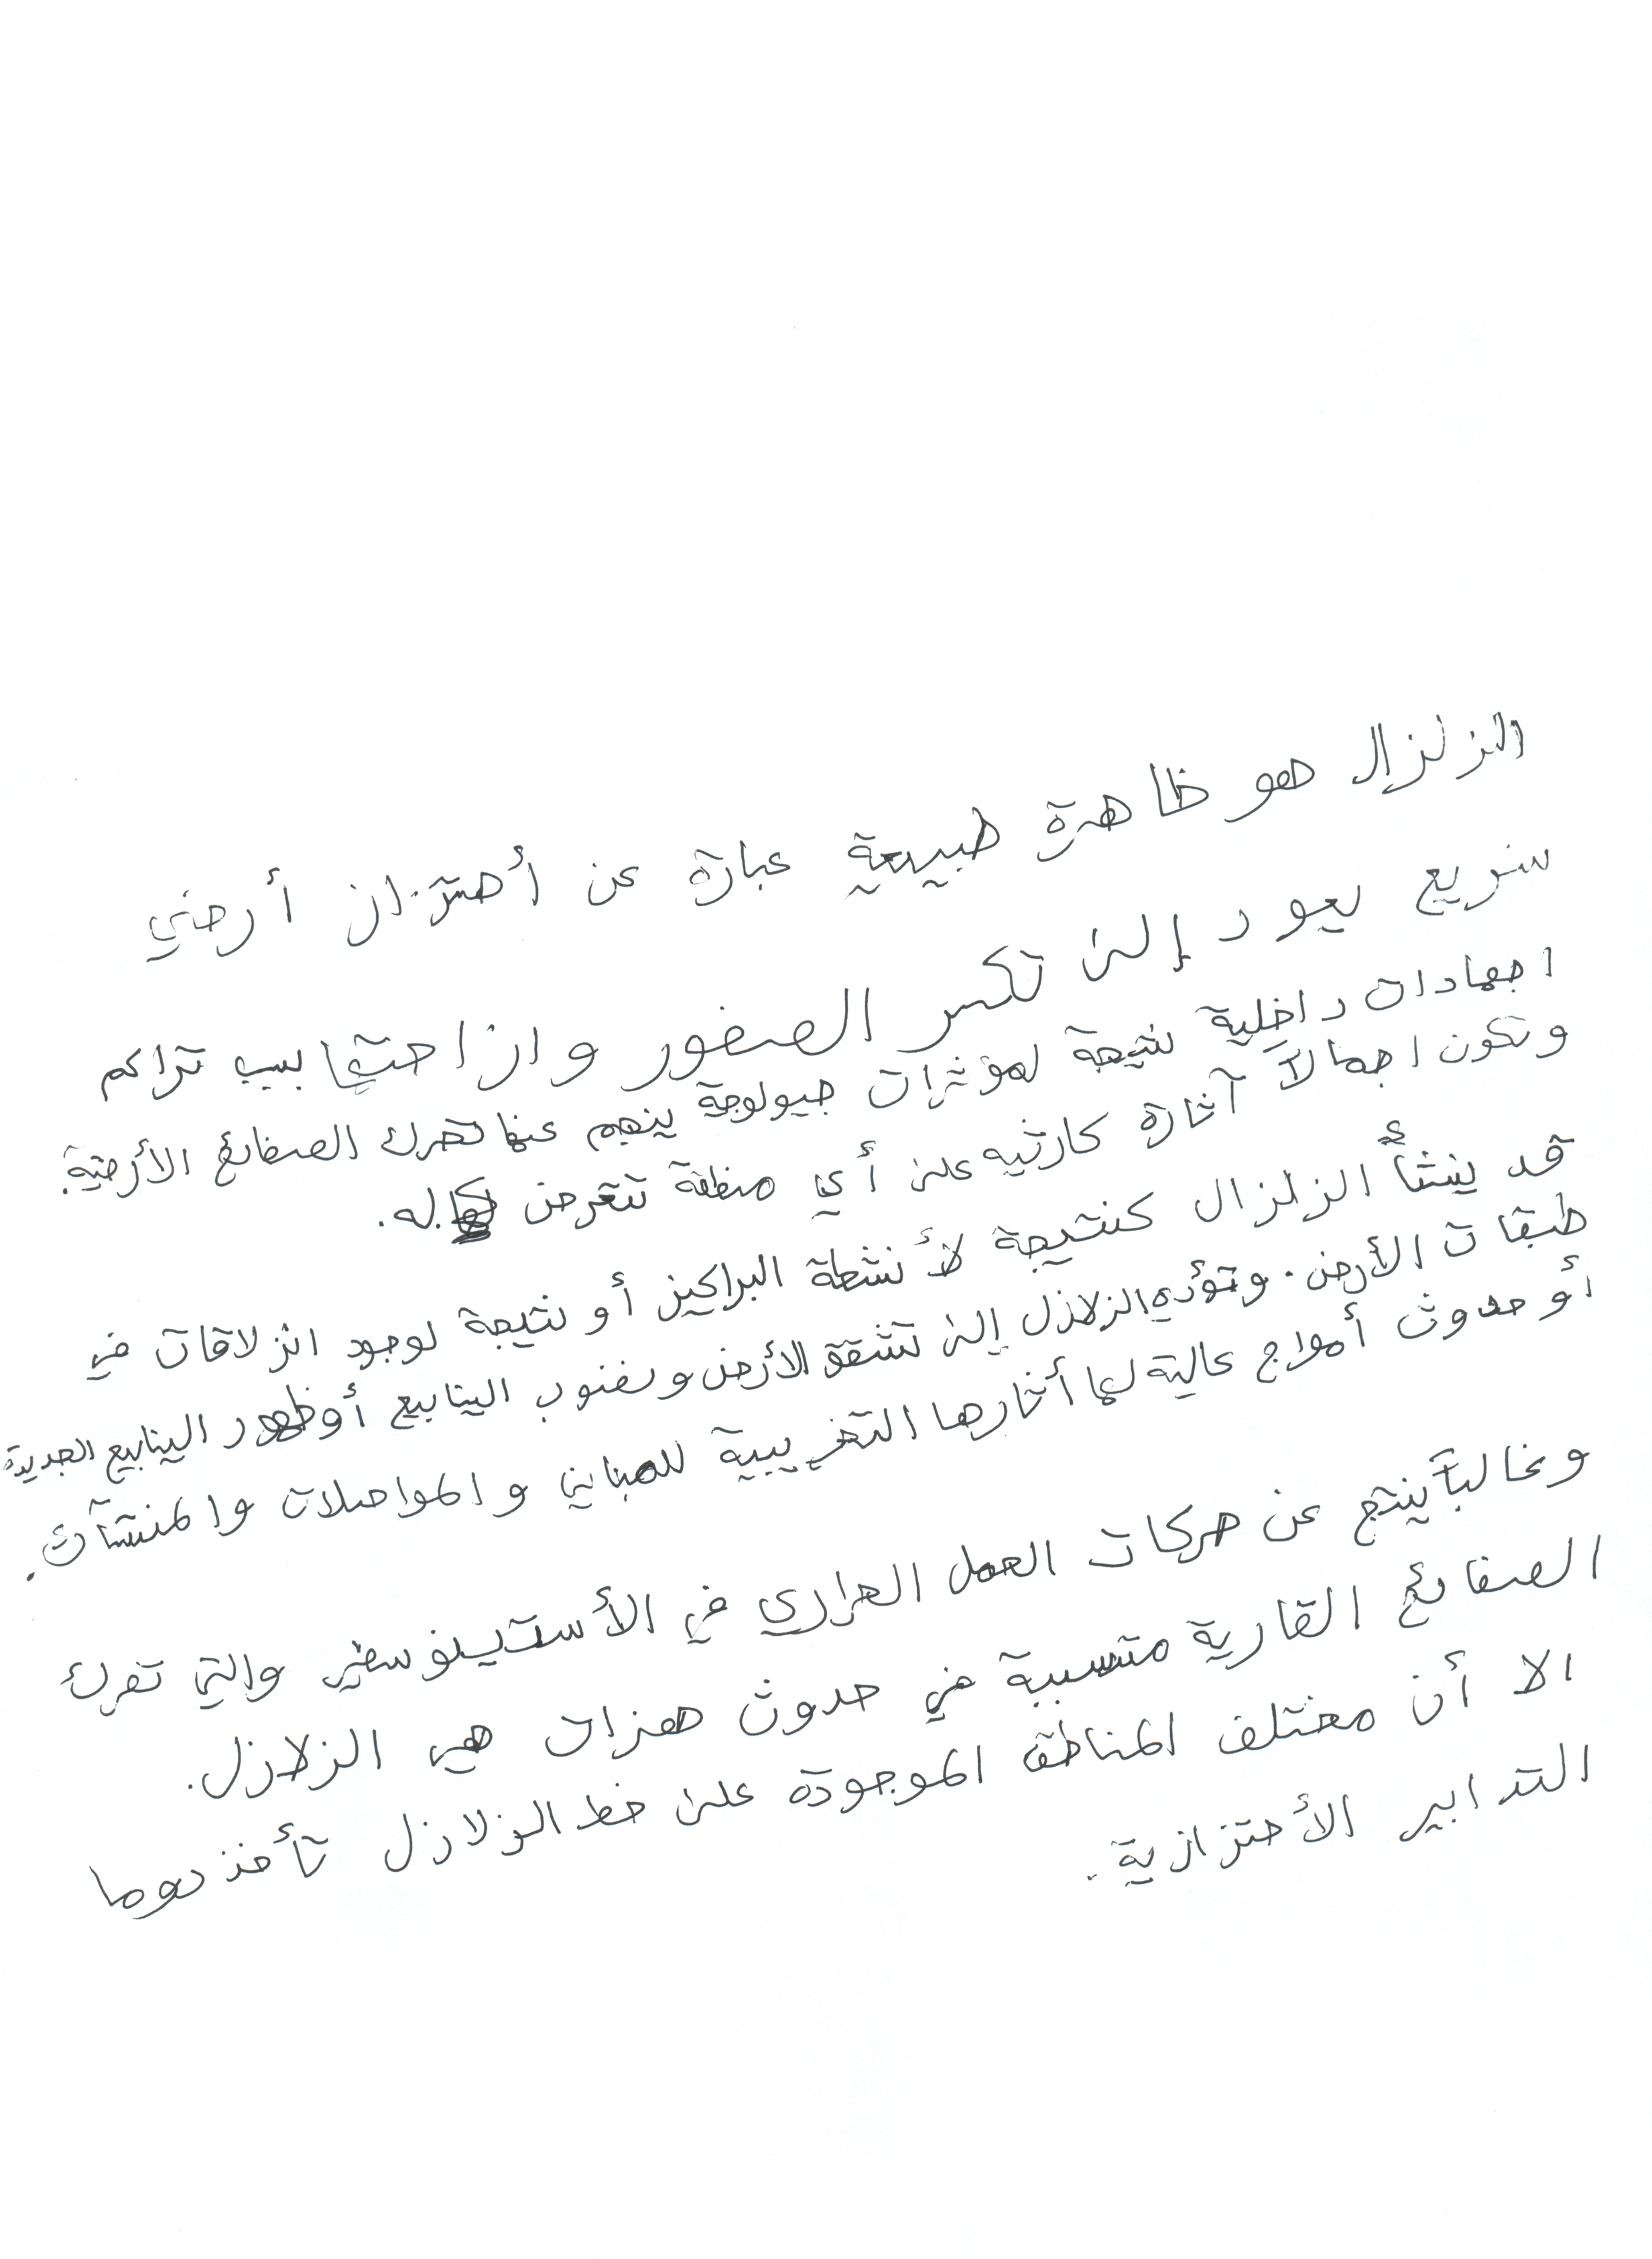 الزلزال هو ظاهرة طبيعية عبارة عن أهتزاز أرضي
سريع يعود إلى تكسر الصخور وازاحتها بسبب تراكم
اجهادات داخلية نتيجة لمؤثرات جيولوجية ينجم عنها تحرك الصفائح الأرضية.
وتكون اجمالاً آثارة كارثيه على أي منطقة تتعرض له.
قد ينشأ الزلزال كنتيجة لأنشطة البراكين أو نتيجة لوجود انزلاقات في
طبقات الأرض. وتؤدي الزلازل إلى تشقق الأرض ونضوب الينابيع أو ظهور الينابيع الجديدة
أو حدوث أمواج عالية لها أثارها التخريبية للمباني والمواصلات والمنشآت.
وغالباً ينتج عن حركات الحمل الحراري في الأستينوسفير والتي تحرك
الصفائح القارية متسببة في حدوث هزات هي الزلازل.
الا أن مختلف المناطق الموجودة على خط الزلازل تأخذ دوما
التدابير الأحترازية.